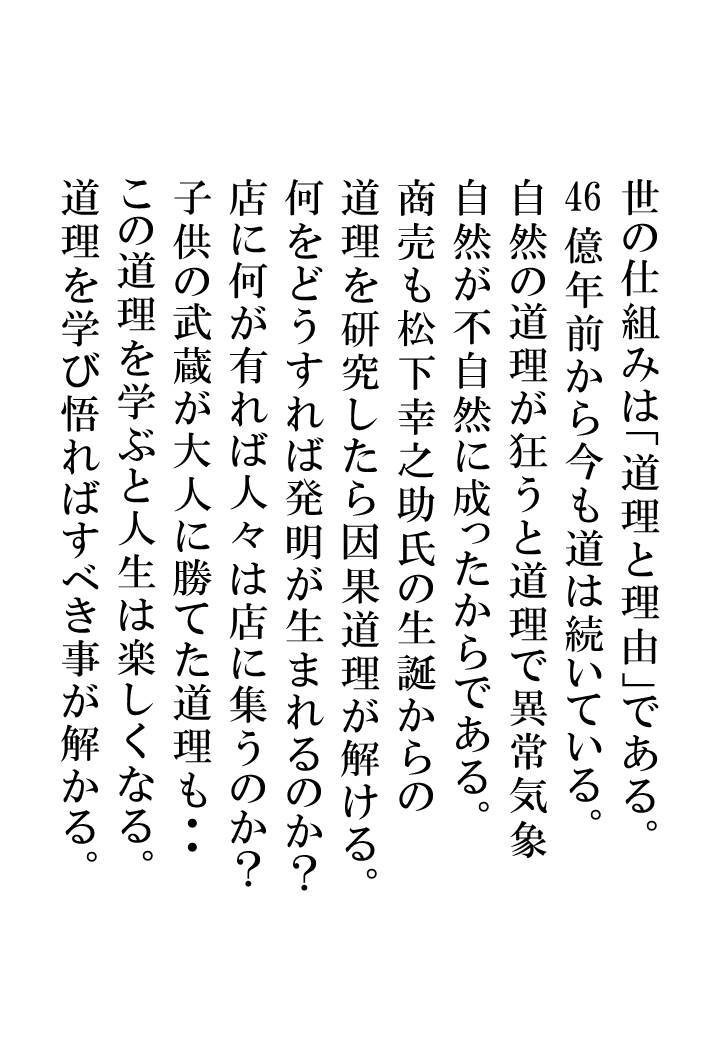 世の仕組みは「道理と理由」である。
46億年前から今も道は続いている。
自然の道理が狂うと道理で異常気象
自然が不自然に成ったからである。
商売も松下幸之助氏の生誕からの
道理を研究したら因果道理が解ける。
何をどうすれば発明が生まれるのか？
店に何が有れば人々は店に集うのか？
子供の武蔵が大人に勝てた道理も・・
この道理を学ぶと人生は楽しくなる。
道理を学び悟ればすべき事が解かる。